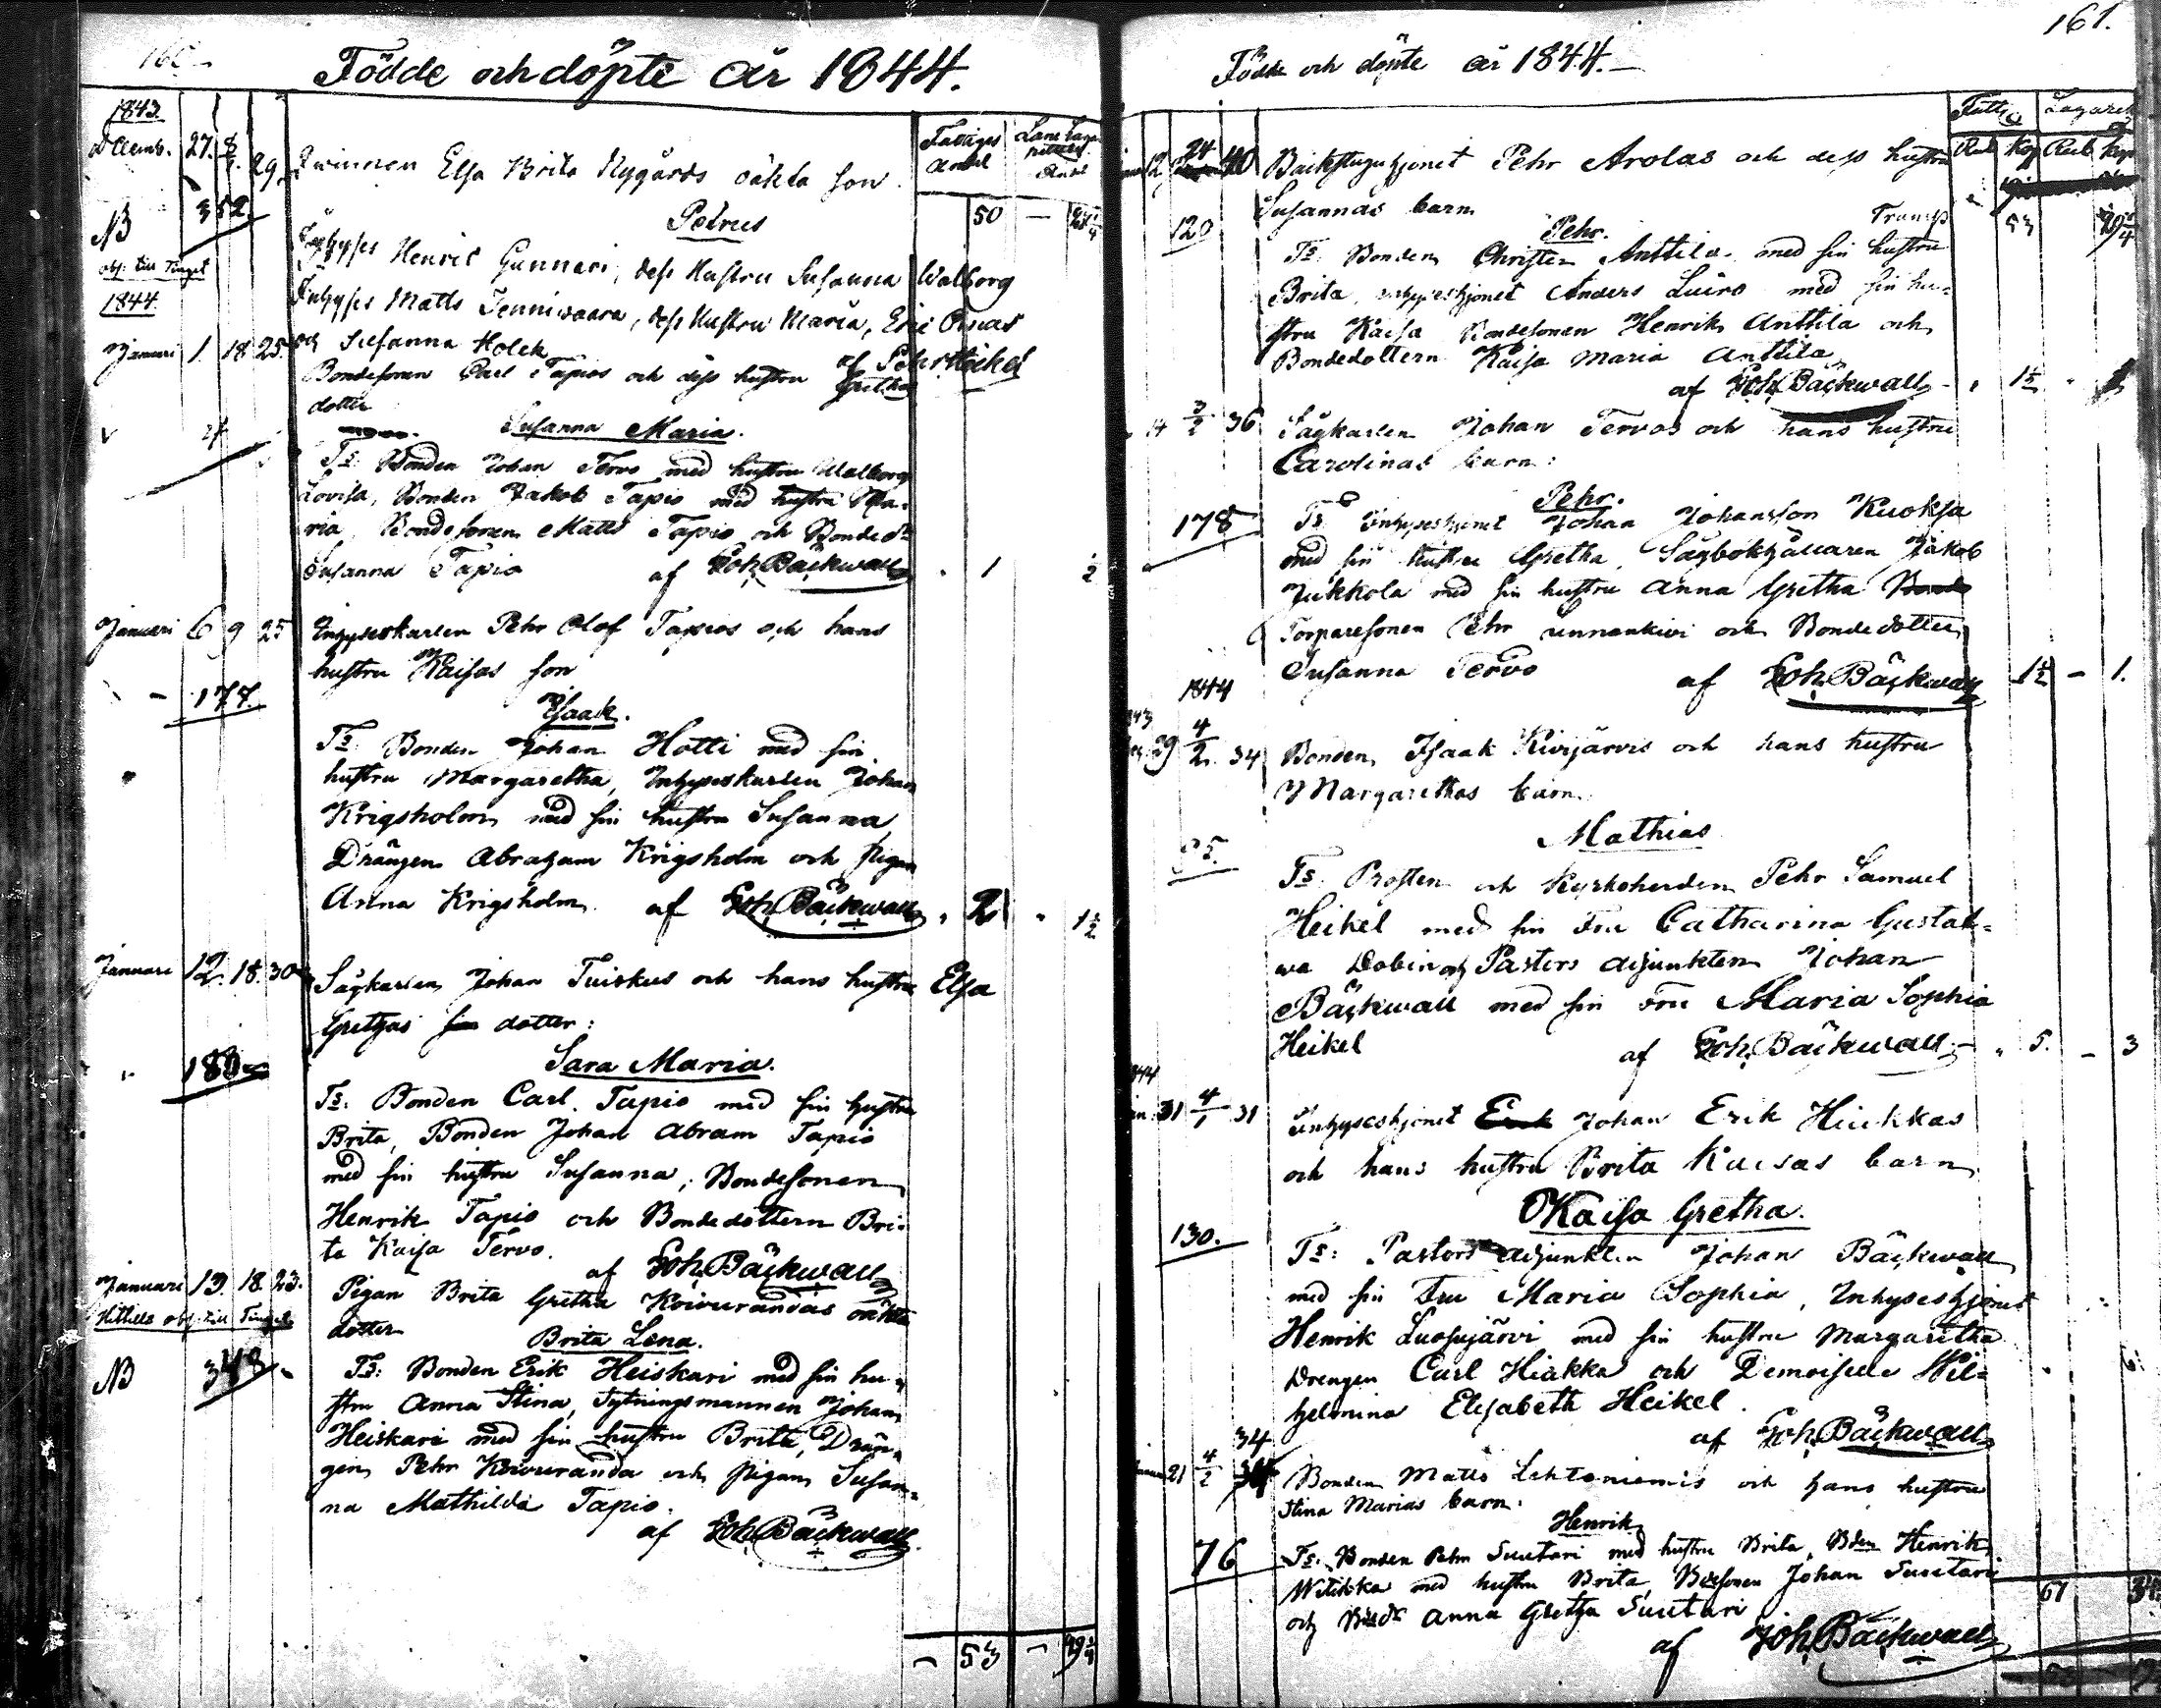 160
Födde och döpte år 1844.
1843
Decemb. 27. 8/1. 29. Qwinnan Elsa Brita Nygårds oäkta son
Fattiges Andel
NB 352
Petrus 50 —
Inhyses Henric Gunnari, dess Hustru Susanna Walborg
anf: till Tinget
Inhyses Matts Jenniwaara, dess Hustru Maria, Eric Oinas
1844.
och Susanna Holck af Pehr Heikel
Januari 1. 18 25. Bondesonen Carl Tapios och dess hustru Grethas
dotter
Susanna Maria.
Ts: Bonden Johan Tervo med hustru Walborg
Lovisa, Bonden Jakob Tapio med hustru Ma-
ria, Bondesonen Matts Tapio och Bondedr
Susanna Tapio af Joh. Bäckwall 1 ½
Januari 6 9 25 Inhyseskarlen Pehr Olof Tapios och hans
hustru Kaisas son
177.
Isaak.
Ts: Bonden Johan Hotti med sin
hustru Margaretha, Inhyseskarlen Johan
Krigsholm med sin hustru Susanna
Drängen Abraham Krigsholm och pigan
Anna Krigsholm af Joh. Bäckwall 2 1½
Januari 12. 18. 30 Sågkarlen Johan Tuiskus och hans hustru Elsa
Grethas dotter:
180
Sara Maria.
Ts: Bonden Carl Tapio med sin hustru
Brita, Bonden Johan Abram Tapio
med sin hustru Susanna, Bondesonen
Henrik Tapio och Bondedottern Bri-
ta Kaisa Tervo.
af Joh. Bäckwall
Januari 13. 18. 23. Pigan Brita Gretha Koivurandas oäkta
dotter
Brita Lena.
NB 343
Ts: Bonden Erik Heiskari med sin hu-
stru Anna Stina, Sytningsmannen Johan
Heiskari med sin hustru Brita, Drän-
gen Pehr Koivuranda och pigan Susan-
na Mathilda Tapio.
af Joh. Bäckwall
— 53 — 49¾
161.
Födde och döpte år 1844.—
Rub Kop Rub Kop
12 24 40 Backstuguhjonet Pehr Arolas och dess hustru
Susannas barn
120 Pehr. Transp 53 49¾
Ts: Bonden Christer Anttila med sin hustru
Brita, inhyseshjonet Anders Luiro med sin hu-
stru Kaisa Bondesonen Henrik Anttila och
Bondedottern Kaisa Maria Anttila
af Joh. Bäckwall 1½
14 3/2 36 Sågkarlen Johan Tervos och hans hustru
Carolinas barn:
Pehr.
178 Ts: Inhyseshjonet Johan Johansson Kuoksa
med sin hustru Gretha, Sågbokhållaren Jakob
Jukkola med sin hustru Anna Gretha
Torparesonen Pehr Unnankivi och Bondedottern
Susanna Tervo af Joh. Bäckwall 1½ — 1.
1844
29 4/2. 34 Bonden Isaak Kivijärvis och hans hustru
Margarethas barn
Mathias
Ts: Prosten och Kyrkoherden Pehr Samuel
Heikel med sin Fru Catharina Gustaf-
wa Dobin och Pastors adjunkten Johan
Bäckwall med sin Fru Maria Sophia
Heikel af Joh. Bäckwall — 5. — 3
31 4/1 31 Inhyseshjonet Johan Erik Hiukkas
och hans hustru Brita Kaisas barn
Kaisa Gretha.
130.
Ts: Pastors adjunkten Johan Bäckwall
med sin Fru Maria Sophia, Inhyseshjonet
Henrik Luosujärvi med sin hustru Margaretha
Drengen Carl Hiukka och Demoiselle Wil-
helmina Elisabeth Heikel.
af Joh. Bäckwall
21 4/2 34 Bonden Matts Lehtoniemis och hans hustru
Stina Marias barn.
Henrik
76 Ts: Bonden Pehr Suutari med hustru Brita, Bden Henrik
Witikka med hustru Brita, Bdesonen Johan Suutari
och Bdedr Anna Gretha Suutari
67
af Joh. Bäckwall